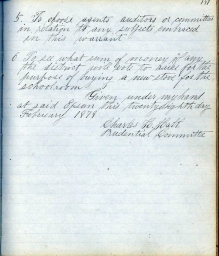 5. To choose agents auditors or committees
in relation to any subjects embraced
in this warrant
6. To see what sum of money if any
the district will vote to raise for the
purpose of buying a new stove for the
schoolroom
Given under my hand
at said Epsom this twenty eighth day
February 1878
Charles H.
Prudential Committee